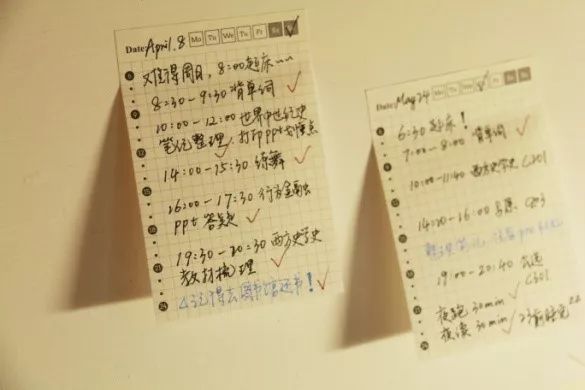 Date: April.8 Mo Tu We Tu Fr Sa
难得周日，8:00起床~~
8:30-9:30 背单词
10:00-12:00 世界中世纪史
笔记整理，打印ppt
14:00-15:30 练舞
16:00-17:30 行为金融
ppt 答疑
19:30-20:30 西方史学史
教材梳理
△记得去图书馆还书！
Date: May 24
6:30 起床！
7:00-8:00 背单词
10:00-11:40 西方史学史 C201
14:20-16:00
19:00-20:40 C301
夜跑 30min
夜读 30min 23前睡觉